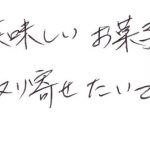 美味しいお菓子
取り寄せたいで